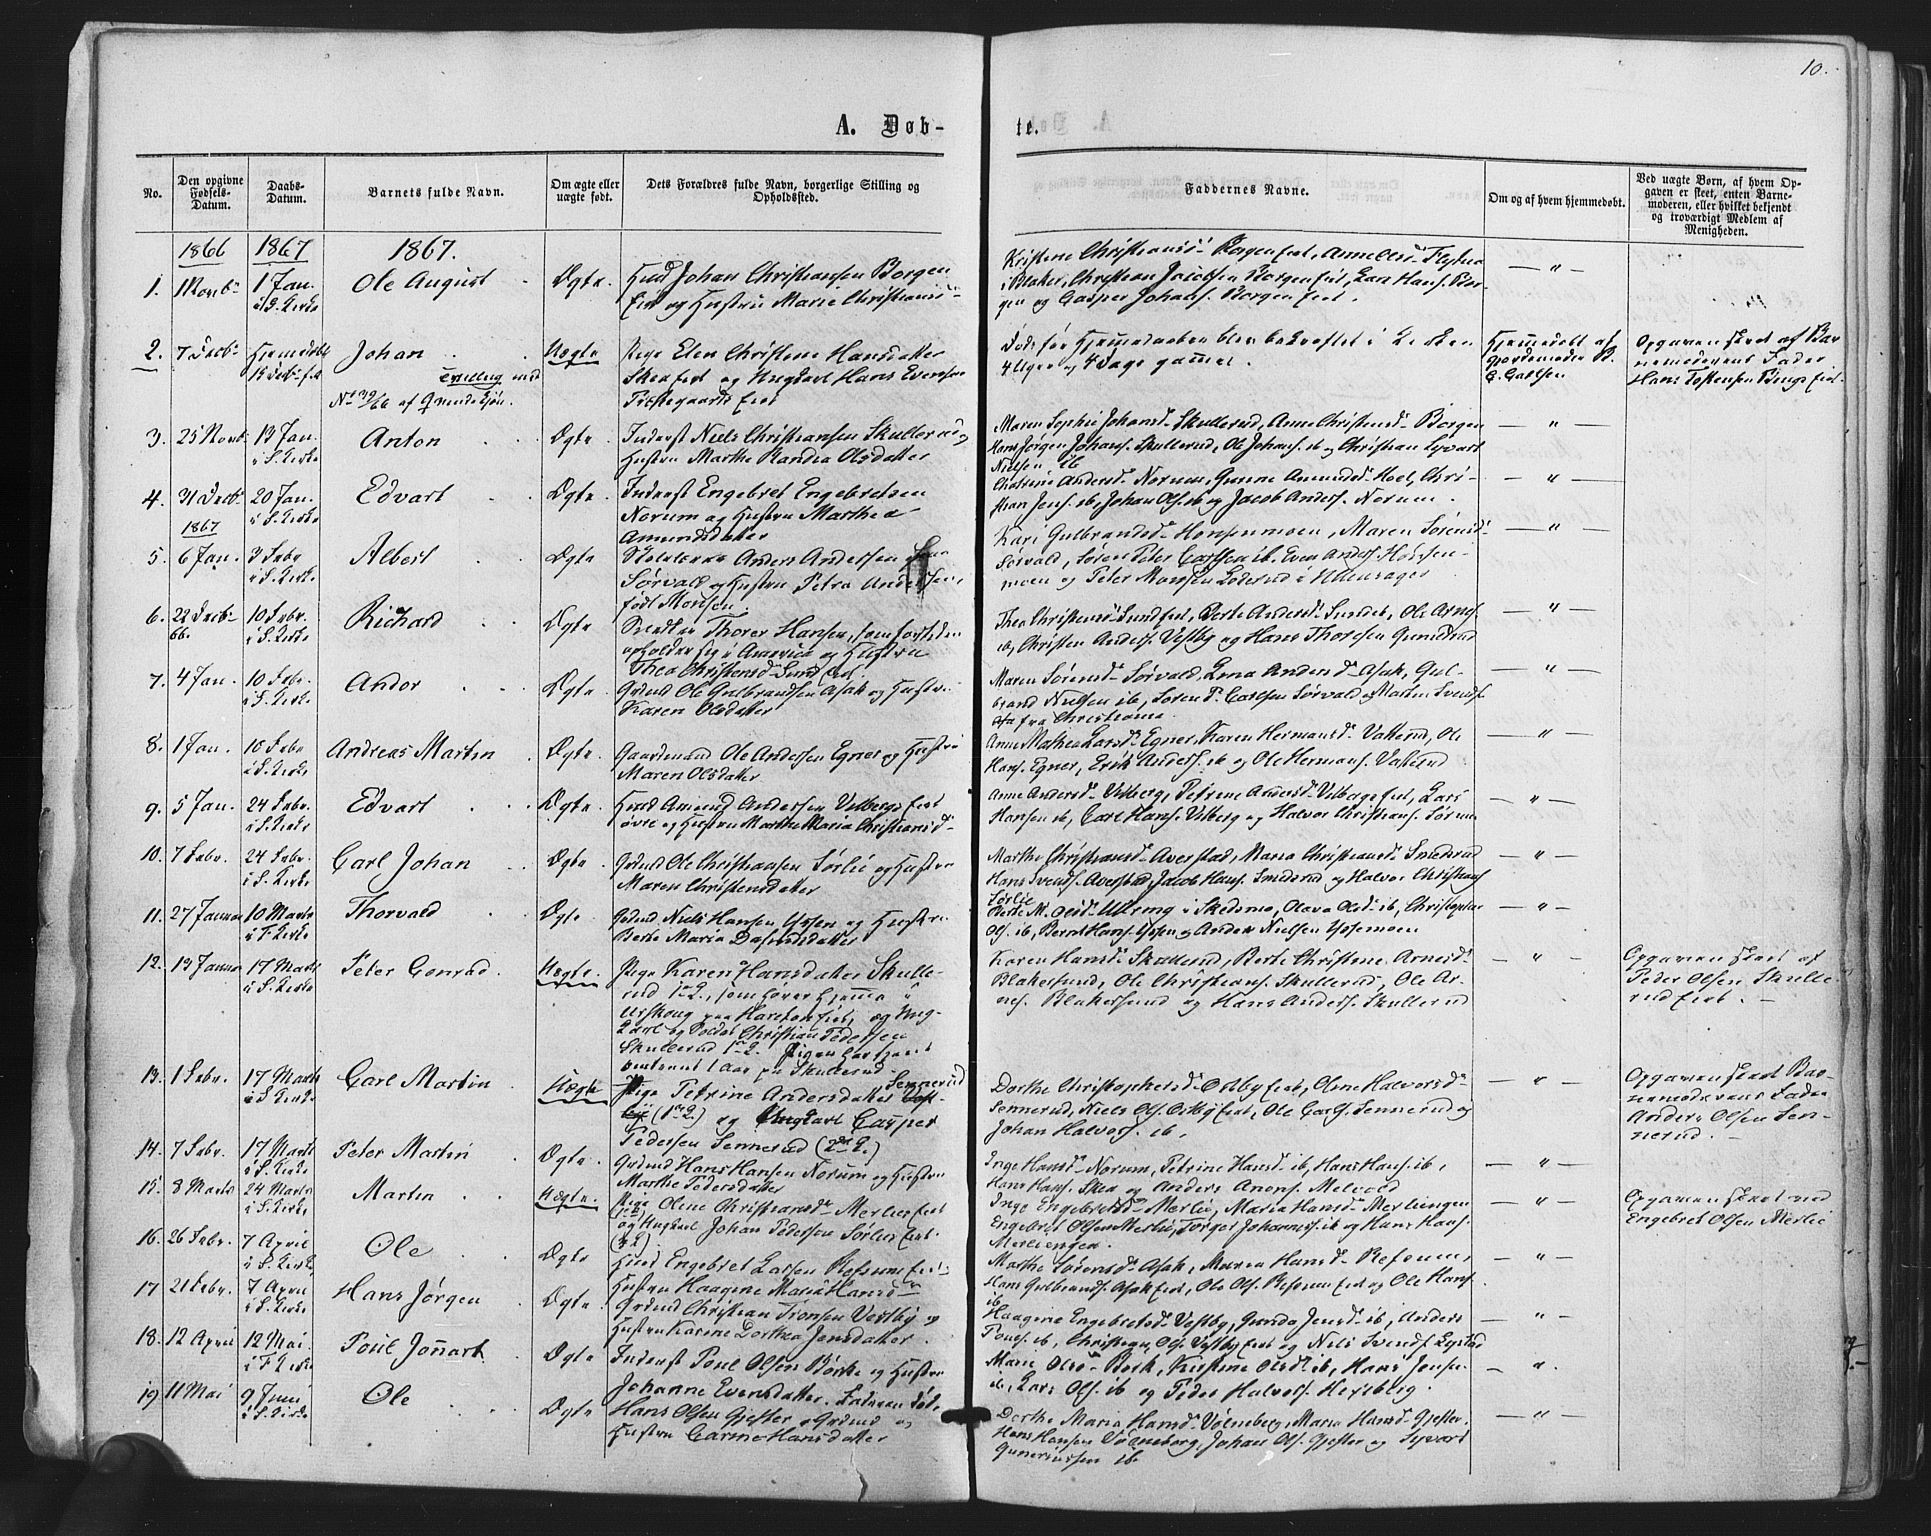 10.
A. Døb-
te.
No.
Den opgivne Fødsels-Datum.
Daabs-Datum.
Barnets fulde Navn.
Om ægte eller uægte født.
Dets Forældres fulde Navn, borgerlige Stilling og Opholdssted.
Faddernes Navne.
Om og af hvem hjemmedøbt.
Ved uægte Børn, af hvem Opgaven er skeet, enten Barnemoderen, eller hvilket bekjendt og troværdigt Medlem af Menigheden.
1866 1867 1867.
1. 1 Novbr 1 Jan. i S. Kirke Ole August Ægte.
Huusmd Johan Christiansen Borgen
eie og Hustru Marie Christiansd
Christian Jacobsen Borgen eiet, Lars Hans. Bor-
gen og Casper Johans. Borgen eiet.
2. 7 Decbr Hjemmedøbt Johan Uægte
Tvilling med
No 39/66 af Qvindekjøn.
Pige Elen Christine Hansdatter
Skea eiet og Ungkarl Hans Evensen
Prestegaards eiet
Død før Hjemmedaaben blev bekræftet i Kirken
4 Uger og 4 Dage gammel
Hjemmedøbt af Gjordemoder
Opgaven skeet af Bar-
nemoderens Fader
3. 25 Novbr 13 Jan. i S. Kirke Anton Ægte.
Inderst Niels Christiansen Skullerud og
Hustru Marthe Randia Olsdatter
Maren Sophie Johansd Skullerud, Anne Christensd Borgen
Hans Jørgen Johans. Skullerud, Ole Johans. ib og Christian Syvert
Nielsen ib
4. 31 Decbr 20 Jan. i S. Kirke Edvart Ægte.
Inderst Engebret Engebretsen
Norum og Hustru Marthea
Amundsdatter
Cathrine Andersd Norum, Gunne Amundsd Hoel, Chri-
stian Jens. ib, Johan Ols. ib og Jacob Anders. Norum.
1867
5. 6 Jan. 3 Febr i S. Kirke Albert Ægte
Anders Andersen
Sørvald og Hustru Petra Andersen,
født Monsen.
Kari Gulbrandsd Honsenmoen, Maren Sørensd
Sørvald, Søren Peter Carlsen ib, Even Anders. Honsen-
moen og Peter Monsen
6. 22 Decbr 66. 10 Febr. i S. Kirke Richard Ægte
Thorer Hansen, som for tiden
opholder sig i America og Hustru
Thea Christensd Sund eiet.
Thea Christensd Sund eiet, Berte Andersd Sund ib, Ole Arnes.
ib, Christen Anders. Vestby og Hans Thoresen
7. 4 Jan. 10 Febr. i S. Kirke Andor Ægte.
Grdmd Ole Gulbrandsen Asak og Hustru
Karen Olsdatter
Maren Sørensd Sørvald, Lina Andersd Asak, Gul-
brand Nielsen ib, Søren P. Carlsen Sørvald og Martin Svends.
fra Christiania
8. 1 Jan. 10 Febr i S. Kirke Andreas Martin Ægte.
Gaardmand Ole Andersen Egner og Hustru
Maren Olsdatter
Anne Mathea Larsd Egner, Karen Hermansd Vakerud, Ole
Hans. Egner, Erik Anders. ib og Ole Hermans. Vakerud
9. 5 Jan. 24 Febr. i S. Kirke Edvart Ægte.
Huusmd Amund Andersen Vilbergs eiet
øvre og Hustru Marthe Maria Christiansd
Anne Andersd Vilberg, Petrine Andersd Vilbergs eiet, Lars
Hansen ib, Carl Hans. Vilberg og Halvor Christians. Sørum
10. 7 Febr. 24 Febr. i S. Kirke Carl Johan Ægte
Grdmd Ole Christiansen Sørlie og Hustru
Maren Christensdatter
Marthe Christiansd Averstad, Maria Christiansd Smedsrud
Hans Svends. Averstad, Jacob Hans. Smedsrud og Halvor Christians.
Sørlie
11. 27 Januar 10 Marts i F. Kirke Thorvald Ægte.
Grdmd Niels Hansen
Berte Maria
Berte M. Olsd Ulreng i Skedsmo, Olava Olsd ib, Christopher
Ols. ib, Bernt Hans. og Anders Nielsen
12. 13 Januar 17 Marts i S. Kirke Peter Conrad Uægte.
Pige Karen Hansdatter Skulle-
rud 1ste L., som hører hjemme i
Urskoug og Ung-
karl og Soldat Christian Pedersen
Skullerud 1ste L. Pigen har tjent
omtrent 1 Aar paa Skullerud.
Karen Hansd Skullerud, Berte Christine Arnesd
Blakersund, Ole Christians. Skullerud, Ole Ar-
nes. Blakersund og Hans Anders. Skullerud
Opgaven skeet af
Peder Olsen Skulle-
rud eiet.
13. 1 Febr. 17 Marts i S. Kirke Carl Martin Uægte
Pige Petrine Andersdatter Sennerud
(1ste L.) og Ungkarl Casper
Pedersen Sennerud (2den L.)
Dorthe Christophersd Ostby eiet, Oline Halvorsd
Sennerud, Niels Ols. Ostby eiet, Ole Carls. Sennerud og
Johan Halvors. ib.
Opgaven skeet Bar-
nemoderens Fader
Anders Olsen Sen-
nerud.
14. 7 Febr. 17 Marts i S. Kirke Peter Martin Ægte.
Grdmd Hans Hansen Norum og Hustru
Marthe Pedersdatter
Inge Hansd Norum, Petrine Hansd ib, Hans Hans. ib,
Hans Hans. Skea og Anders Melvold
15. 8 Marts 24 Marts i S. Kirke Martin Uægte.
Pige Oline Christiansd Merlie eiet
og Ungkarl Johan Pedersen Sørlie eiet.
Inge Engebretsd Merlie, Maria Hansd Merliengen
Engebret Olsen Merlie, Torger Johannes. ib og Hans Hans.
Merliengen.
Opgaven skeet ved
Engebret Olsen Merlie
16. 26 Febr. 7 April i S. Kirke Ole Ægte
Huusmd Engebret Larsen Refsum eiet
Hustru Haagine Maria Hansd
Marthe Sørensd Asak, Maria Hansd Refsum,
Hans Gulbrands. Asak eiet, Ole Ols. Refsum eiet og Ole Hans.
ib
17. 21 Febr. 7 April i S. Kirke Hans Jørgen Ægte.
Grdmd Christian Tronsen Vestby og
Hustru Karine Dorthea Jensdatter.
Haagine Engebretsd Vestby, Gunda Jensd ib, Anders
Pouls. ib, Christian Ols. Vestby eiet og Niels Svends.
18. 12 April 12 Mai i F. Kirke Poul Jonnart Ægte
Inderst Poul Olsen Børke og Hustru
Johanne Evensdatter.
Marie Olsd Bork, Kirstine Olsd ib, Hans Jensen
ib, Lars Ols. ib og Peder Halvors. Hexeberg.
19 11 Mai 9 Juni i S. Kirke Ole Ægte
Hans Olsen Gjester, Grdmd og
Hustru Carine Hansdatter
Dorthe Maria Hansd Vølneberg, Maria Hansd Gjester,
Hans Hansen Vølneberg, Johan Ols. Gjester og Syvert
Gunerussen ib.